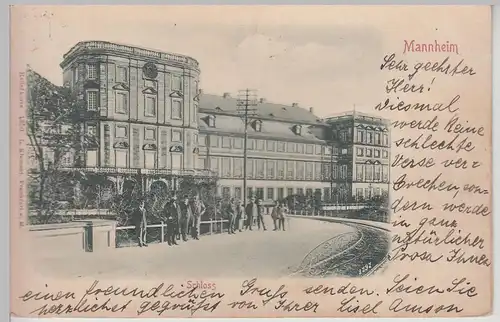 Mannheim
Sehr geehrter
Herr!
Diesmal
werde keine
schlechte
Verse ver-
brechen, son-
dern werde
in ganz
natürlicher
Prosa Ihnen
einen freundlichen Gruß senden. Seien Sie
herzlichst gegrüsst von Ihrer Lisel
Schloss